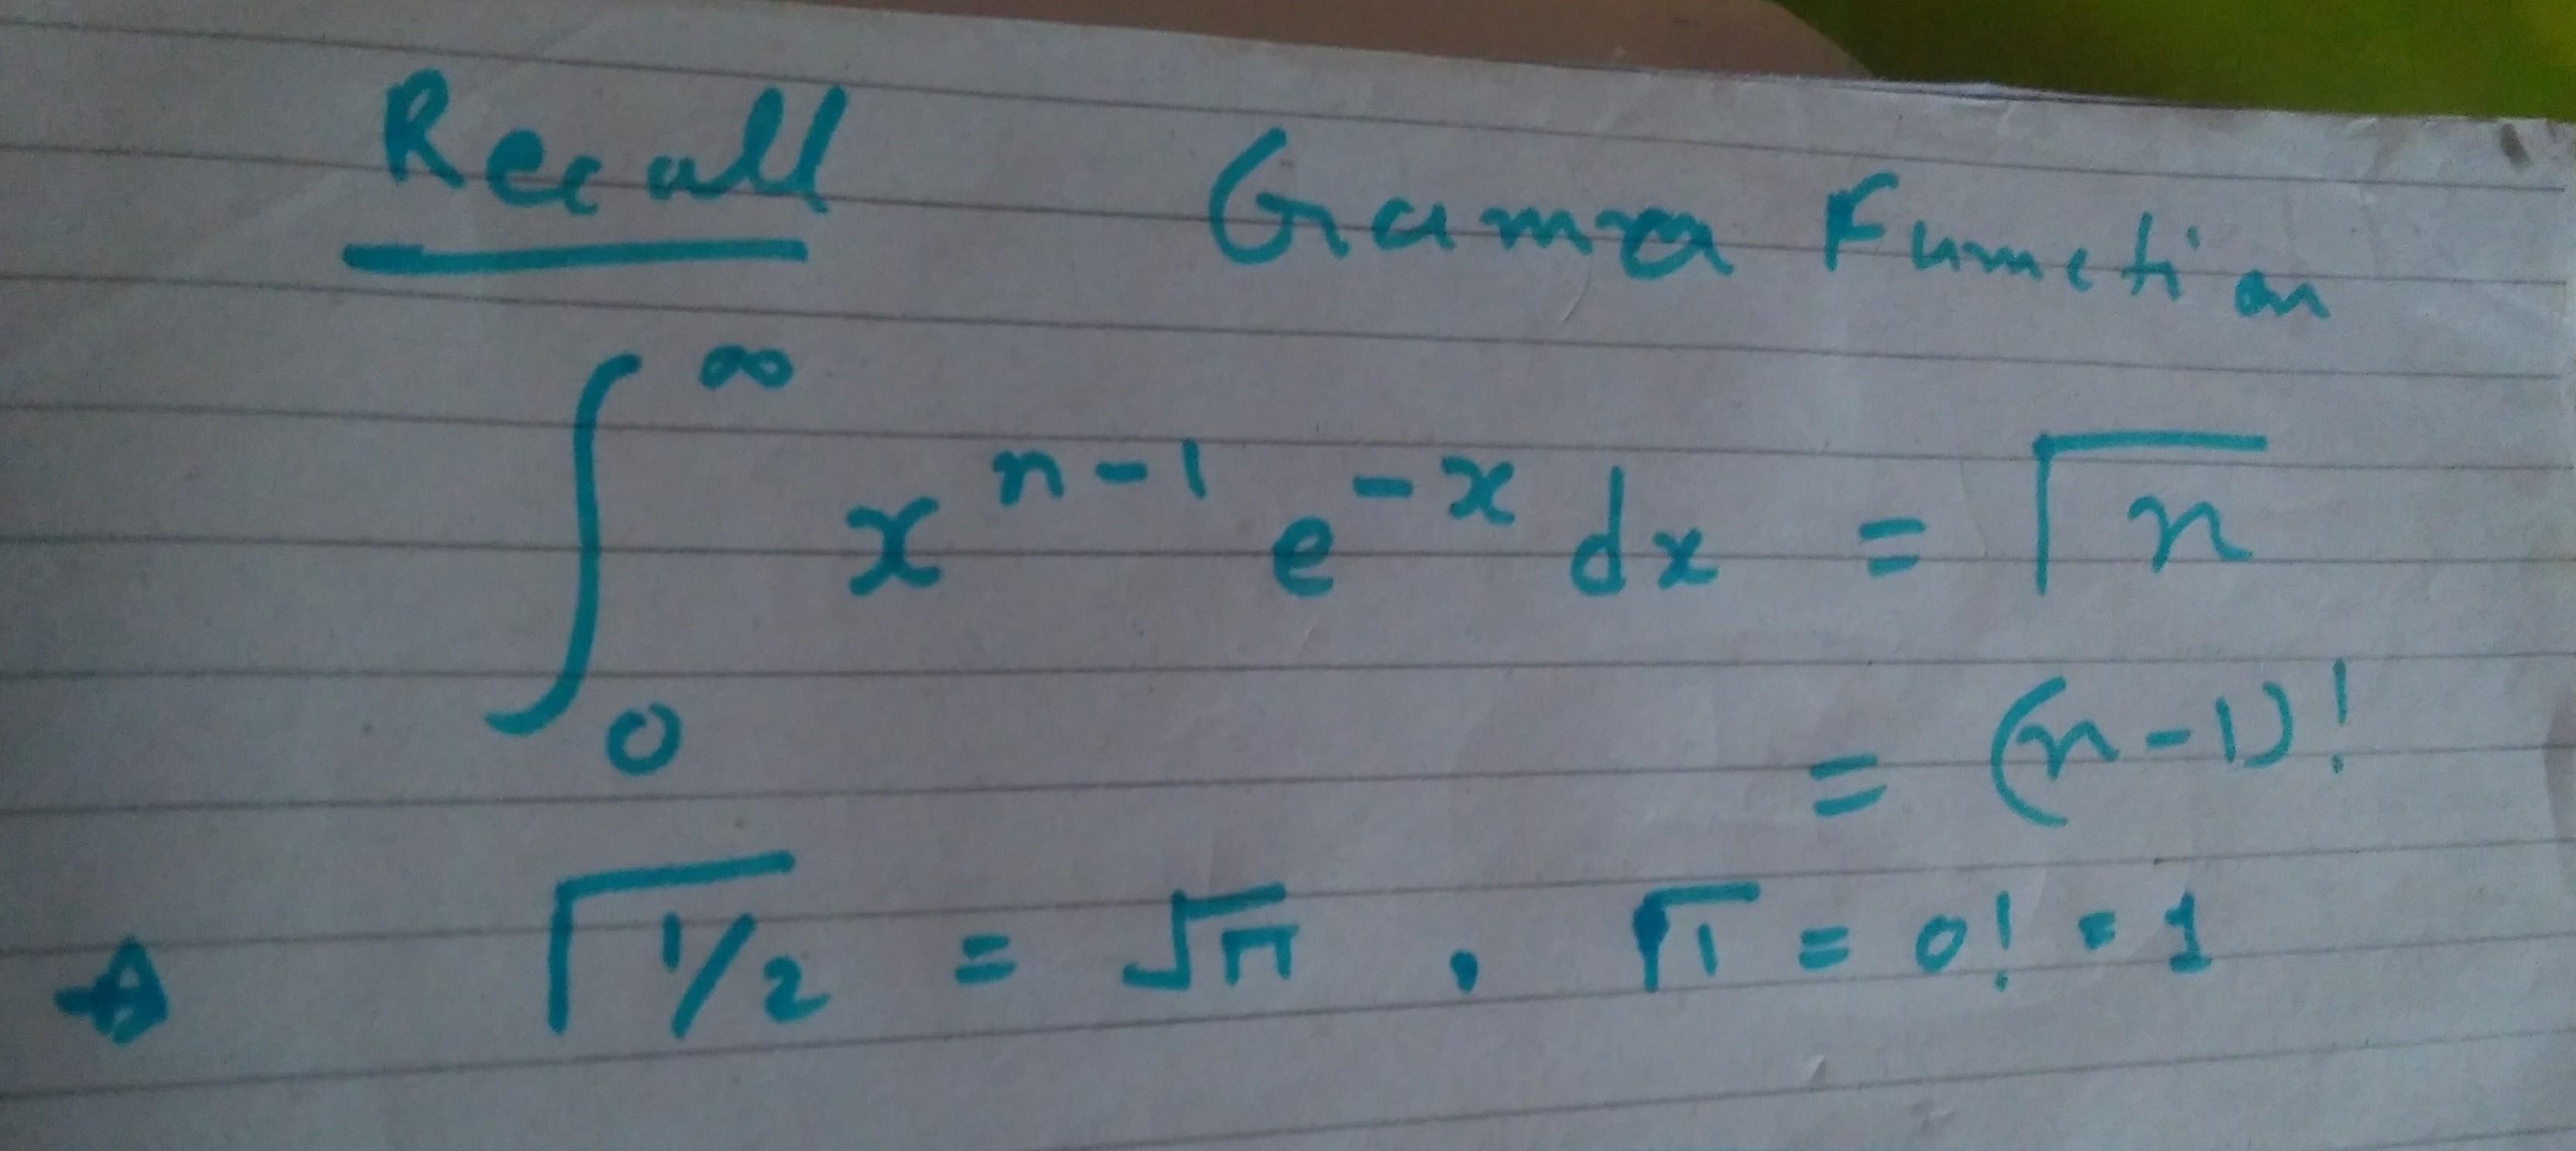 Recall Gamma Function
∫₀^∞ x^{n-1} e^{-x} dx = Γn
= (n-1)!
Γ1/2 = √π , Γ1 = 0! = 1